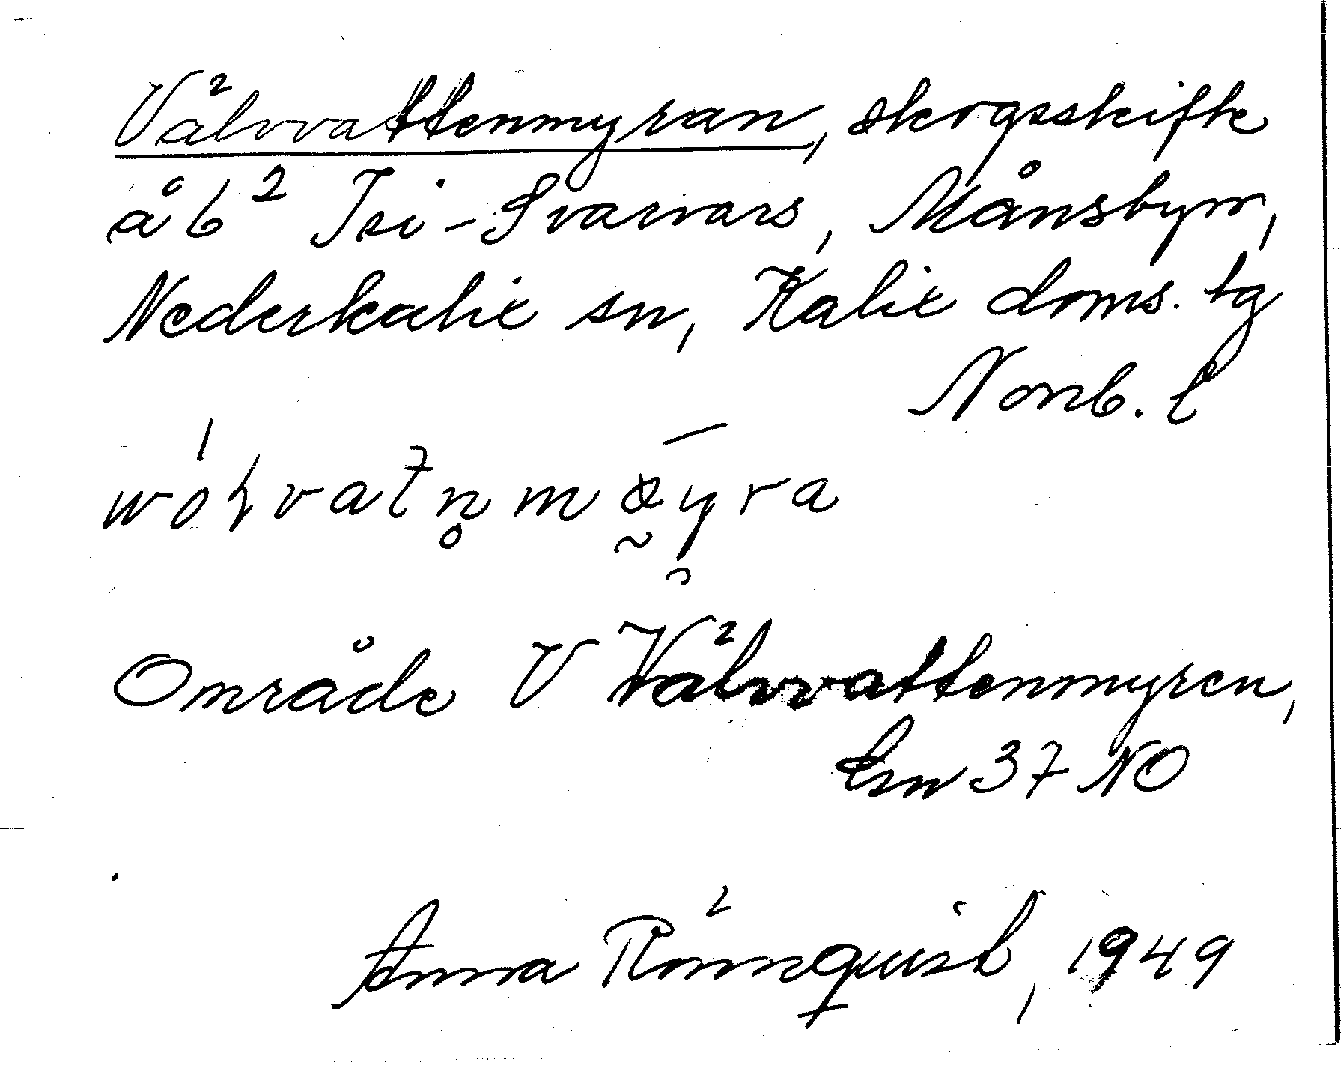 Vålvvattenmyran, skogsskifte
å 6² Isi-Svarvars, Månsbyn,
Nederkalix sn, Kalix doms. tg
Norrb. l
Område V Vålvvattenmyren,
Em 37 NO
Anna Rönnquist, 1949